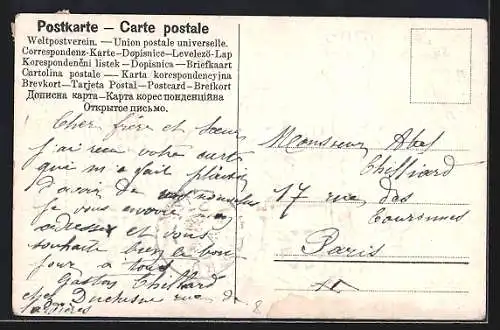 Postkarte — Carte postale
Weltpostverein. — Union postale universelle.
Correspondenz-Karte—Dopisnice—Levelező-Lap
Korespondenční lístek—Dopisnica—Briefkaart
Cartolina postale — Karta korespondencyjna
Brevkort—Tarjeta Postal—Postcard—Brefkort
Дописна карта—Карта кореспонденційна
Открытое письмо.
Cher frère et Sœur
j'ai reçu votre carte
qui m'a fait plaisir
d'avoir de vos nouvelles
je vous envoie mon
adresse et vous
souhaite bien le bon
jour à tous
Gaston Chilliard
chez Duchesne rue de
Monsieur Abel
Chilliard
17 rue des
Couronnes
Paris
8